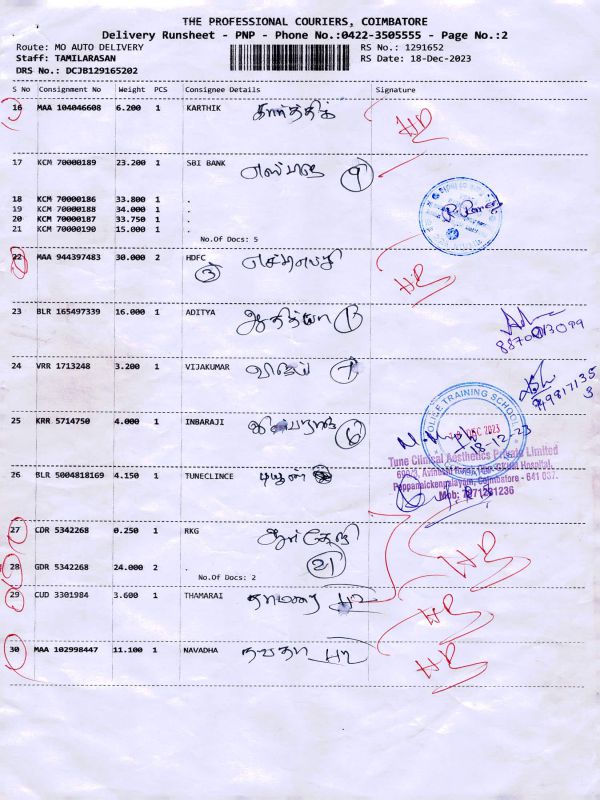 THE PROFESSIONAL COURIERS, COIMBATORE
Delivery Runsheet - PNP - Phone No.:0422-3505555 - Page No.:2
Route: MO AUTO DELIVERY RS No.: 1291652
Staff: TAMILARASAN RS Date: 18-Dec-2023
DRS No.: DCJB129165202
S No Consignment No Weight PCS Consignee Details Signature
16 MAA 104046608 6.200 1 KARTHIK கார்த்திக்
17 KCM 70000189 23.200 1 SBI BANK 9
18 KCM 70000186 33.800 1 .
19 KCM 70000188 34.000 1 .
20 KCM 70000187 33.750 1 .
21 KCM 70000190 15.000 1 .
No.Of Docs: 5
22 MAA 944397483 30.000 2 HDFC 3
23 BLR 165497339 16.000 1 ADITYA ஆதித்யா
24 VRR 1713248 3.200 1 VIJAKUMAR விஜய்
25 KRR 5714750 4.000 1 INBARAJI 6
POLICE TRAINING SCHOOL
DEC 2023
18-12-23
Tune Clinical Aesthetics Private Limited
Pappanaickenpalayam, Coimbatore - 641 037.
26 BLR 5004818169 4.150 1 TUNECLINCE டியூன்
27 CDR 5342268 0.250 1 RKG ஆர்கேஜி
28 GDR 5342268 24.000 2 . 21
No.Of Docs: 2
29 CUD 3301984 3.600 1 THAMARAI தாமரை
30 MAA 102998447 11.100 1 NAVADHA நவதா